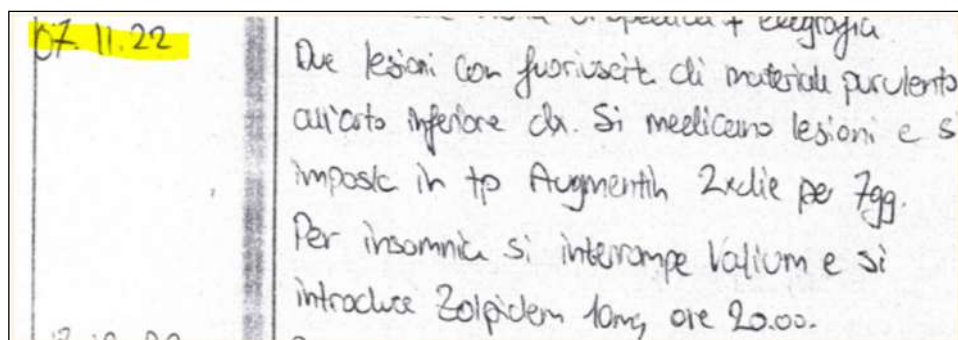 07.11.22
Due lesioni con fuoriuscita di materiale purulento
all'arto inferiore dx. Si medicano lesioni e si
imposta in tp Augmentin 2xdie per 7gg.
Per insonnia si interrompe Valium e si
introduce Zolpidem 10mg ore 20.00.